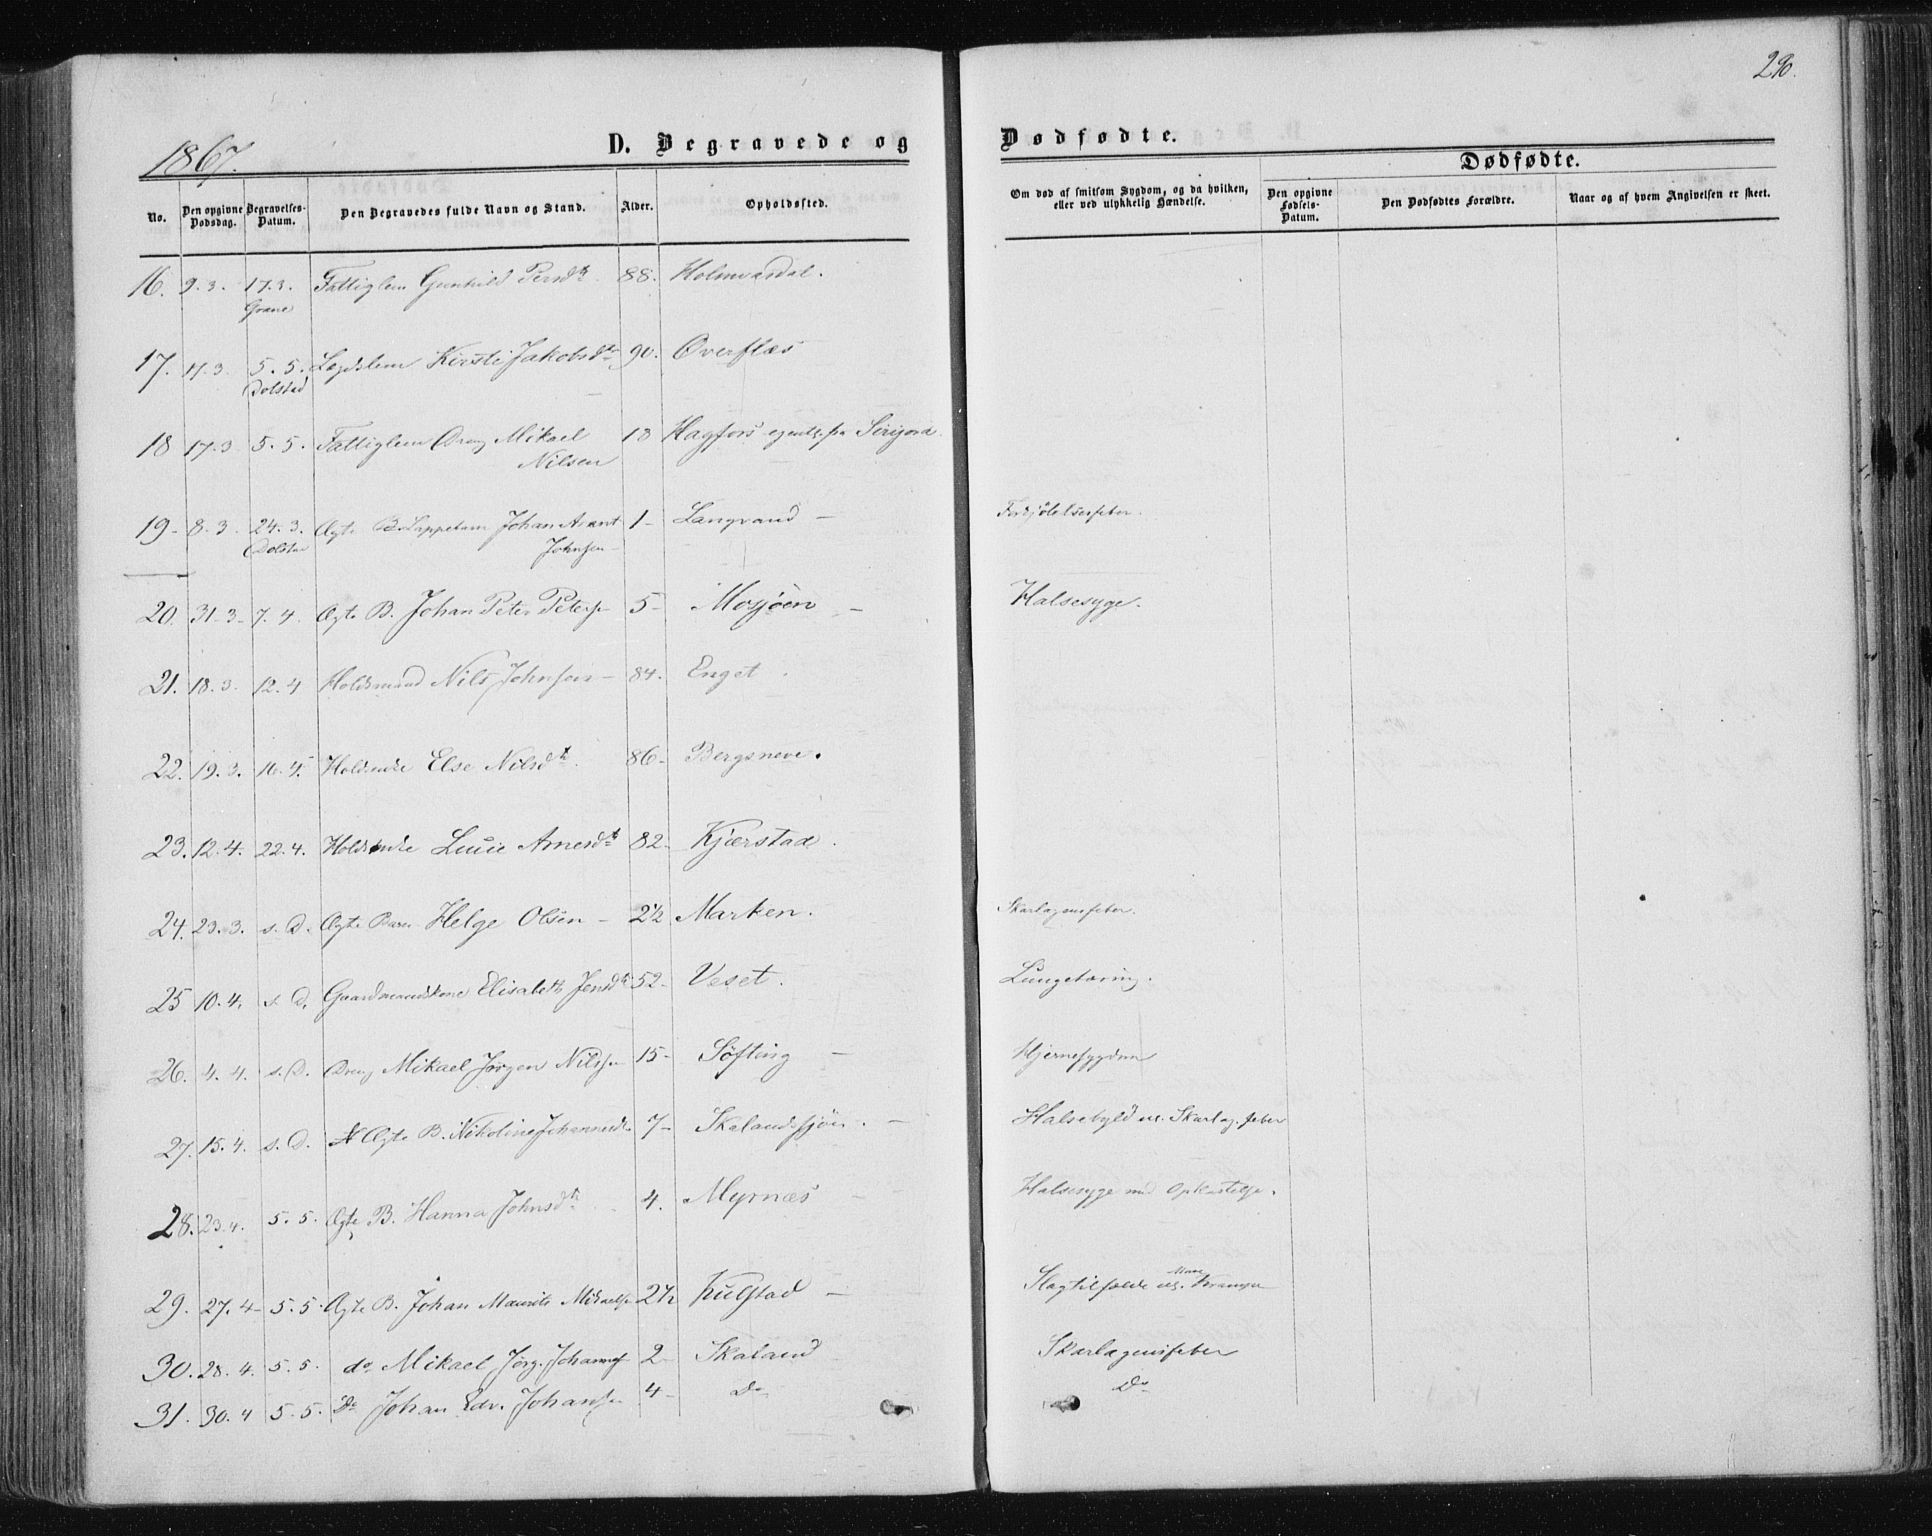 290.
1867.
D. Begravede og Dødfødte.
Dødfødte.
No.
Den opgivne Dødsdag.
Begravelses-Datum.
Den Begravedes fulde Navn og Stand.
Alder.
Opholdssted.
Om død af smitsom Sygdom, og da hvilken, eller ved ulykkelig Hændelse.
Den opgivne Fødsels-Datum.
Den Dødfødtes Forældre.
Naar og af hvem Angivelsen er skeet.
16. 9.3. 17.3. Fattiglem Gunhild Persdtr. 88. Holmvasdal.
Grane
17. 17.3 5.5. Lægdslem Kirsti Jakobsdtr 90. Overflæs
Dolstad
18 17.3 5.5. Fattiglem Dreng Mikael 18 Hagfors egentl. fra
Nilsen
19- 8.3. 24.3. Ægte B. Johan Arent 1- Langvand -
Dolstad Johnsen-
20. 31.3- 7.4. Ægte B. Johan Peter Peters 5- Mosjøen - Halsesyge.
21. 18.3. 12.4 Holdsmand Nils Johnsen- 84. Enget.
22. 19.3. 16.4. Else Nilsdtr. 86- Bergsneve.
23. 12.4. 22.4. Arnesdtr 82- Kjærstad.
24. 23.3. s.D. Ægte Barn Helge Olsen - 2½ Marken. Skarlagensfeber.
25 10.4. s.D. Gaardmandskone Elisabeth Jensdtr 52- Veset. Lungetæring.
26. 4.4. s.D. Dreng Mikael Jørgen Nilssen 15- Søfting - Hjernesygdom
27. 15.4. s.D. Ægte B. Nikoline Johannesdtr 7- Skalandssjøen. - Halsebyld og. Skarlag. feber
28. 23.4. 5.5. Ægte B. Hanna Johnsdtr 4. Myrnæs - Halsesyge med Opkastelse.
29. 27.4- 5.5. Ægte B. Johan Maurits Mikaels 2½ Kulstad - Slagtilfælde Krampe
30. 28.4. 5.5. do Mikael Jørg. Johanns 2- Skaland Skarlagensfeber
31. 30.4 5.5. Do Johan Edv. Johansen 4- Do Do